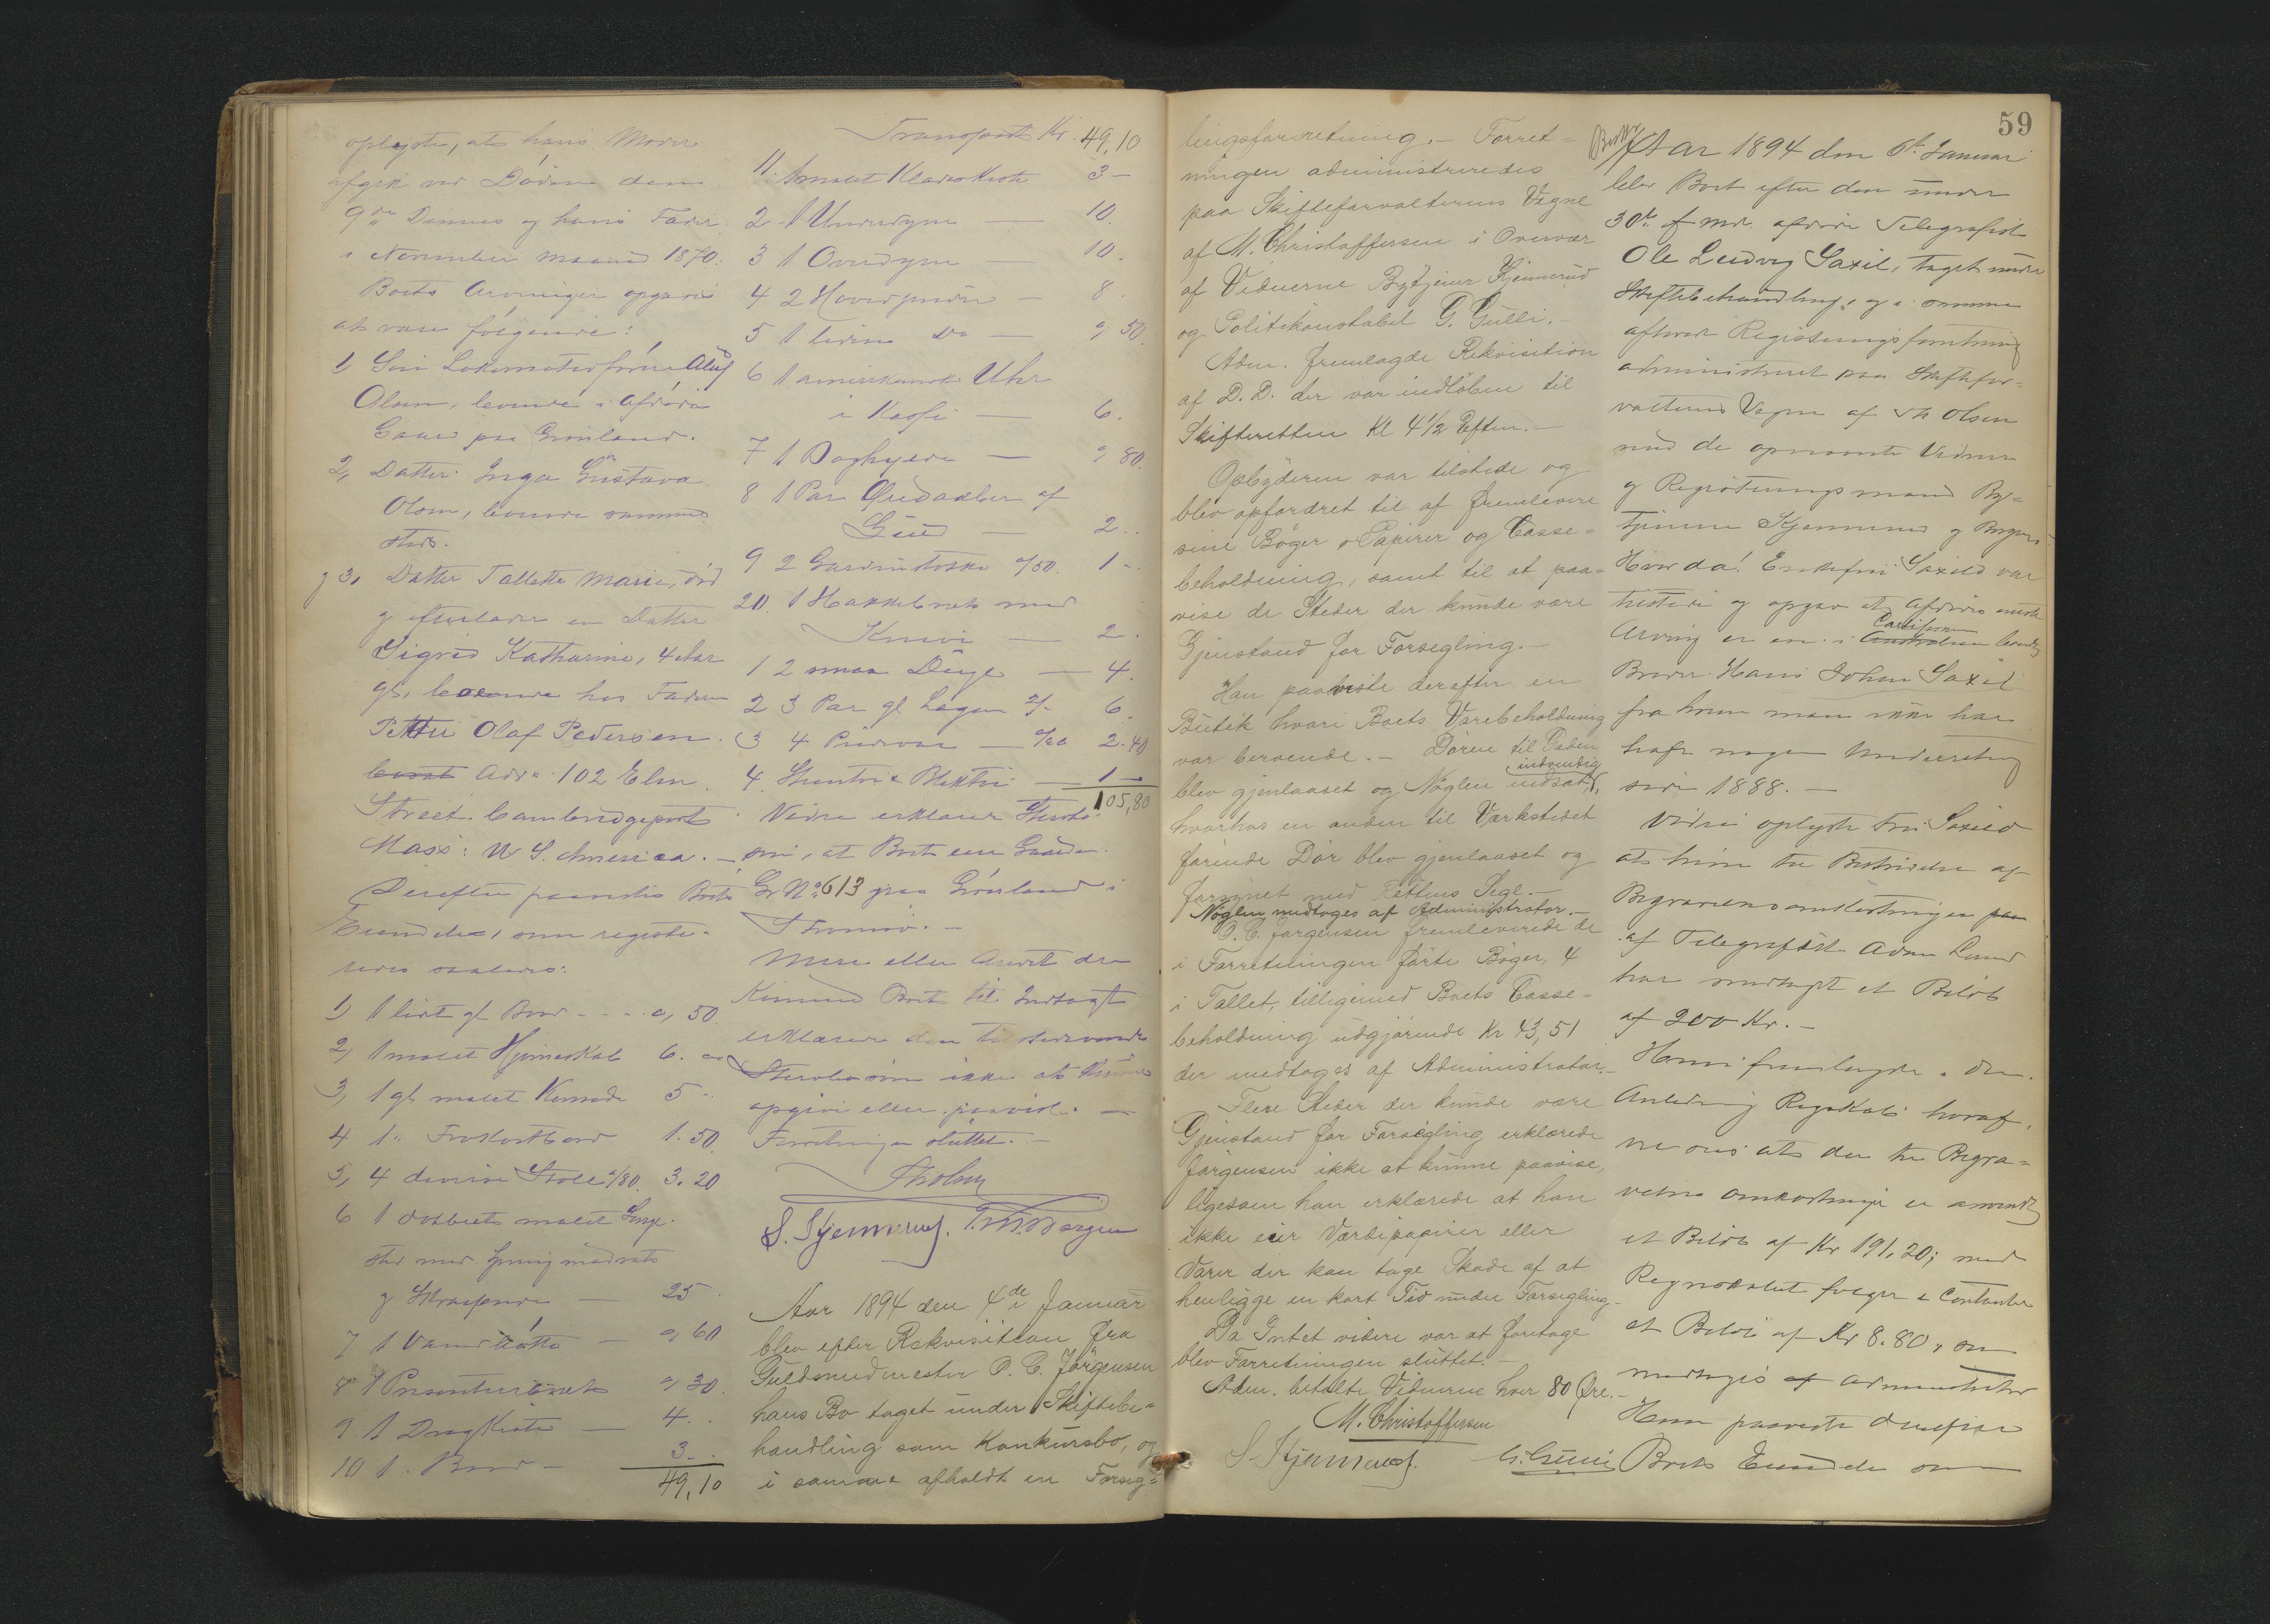 oplyste, at hans Moder
afgik ved Døden den
9de Dennes og hans Fader
i November Maaned 1870.
Boets Arvinger opgaves
at være følgende:
1 Søn Lokomotivfører Oluf
Olsen, levende i afdøde
Gaard paa Grønland.
2, Datter Inga Gustava
Olsen, levende sammes
steds.
og 3, Datter Tallette Marie, død
og efterlader en Datter
Sigrid Katharine, 4 Aar
gl, boende hos Faderen
Petter Olaf Pedersen
Adr: 102 Elm
Street. Cambridgeport
Mass: U S. America. —
Derefter paavistes Boets
Eiendele, som registre-
redes saaledes:
1) 1 lidet gl Bord - - - 0, 50
2, 1 malet Hjørneskab 6. "
3, 1 gl malet Komode 5 "
4 1 " Frokostbord 1. 50
5, 4 diverse Stole a/80. 3. 20
6 1 dobbelt malet Senge-
sted med
og — 25
7 1 Vandbøtte — 0, 60
8 1 Presenterbret 0, 30.
9. 1 Dragkiste — 4. "
10 1. Bord — 3. "
49,10
Transport Kr. 49,10
11. 1 malet Klædeskiste 3 —
2 1 Underdyne — 10.
3 1 Overdyne — 10.
4 2 Hovedpuder — 8.
5 1 liden Do — 0, 50.
6 1 amerikansk Uhr
i Kasse — 6.
7 1 Doghyere — 0, 80.
8 1 Par Øredobber af
Guld — 2 "
9 2 a/50. 1 "
20. 1 Hakkebret med
Kniv — 2.
1 2 smaa Duge — 4.
2 3 Par gl Lagen 2/- 6.
3 4 Pudevar — a/60 2. 40
4. — 1 —
105,80
Videre erklærer Stervbo-
søn, at Boet eier Gaarden
Gr No 613 paa Grønland i
Tromsø. —
Mere eller Andet den
Kommende Boet til Indtægt
erklærede den tilstedeværende
Stervbosøn ikke at kunne
opgive eller paavise. —
Forretningen sluttet. —
S. Kjennerud.
Aar 1894 den 4de Januar
blev efter Rekvisition fra
Guldsmedmester O. C. Jørgensen
hans Bo taget under Skiftebe=
handling som Konkursbo, og
i samme afholdt en Forseg=
59
lingsforretning. — Forret=
ningen administreredes
paa Skifteforvalterens Vegne
af M. Christoffersen i Overvær
af Vidnerne Bytjener Kjennerud
og Politikonstabel G. Gulli. —
Adm. fremlagde Rekvisition
af D. D. der var indløben til
Skifteretten Kl 4½ Eftm. —
Opbyderen var tilstede og
blev opfordret til at fremlevere
sine Bøger o Papirer og Casse=
beholdning, samt til at paa=
vise de Steder der kunde være
Gjenstand for Forsegling. —
Han paaviste derefter en
Butik hvori Boets Varebeholdning
var beroende. — Døren til Gaden
blev gjenlaaset og Nøglen indvendig indsat,
hvorhos en anden til Værkstedet
førende Dør blev gjenlaaset og
forsynet med Rettens Segl. —
Nøglen medtoges af Administrator. —
O. C. Jørgensen fremleverede de
i Forretningen førte Bøger, 4
i Tallet, tilligemed Boets Casse=
beholdning udgjørende Kr 43,51
der medtoges af Administrator. —
Flere Steder der kunde være
Gjenstand for Forsegling erklærede
Jørgensen ikke at kunne paavise,
ligesom han erklærede at han
ikke eier Værdipapirer eller
Varer der kan tage Skade af at
henligge en kort Tid under Forsegling. —
Da Intet videre var at foretage
blev Forretningen sluttet. —
Adm. betalte Vidnerne hver 80 Øre. —
M. Christoffersen
S. Kjennerud. G. Gulli
Aar 1894 den 6te Januar
blev Boet efter den under
30te f Md. afdøde Telegrafist
Ole Ludvig Saxil, taget under
Skiftebehandling, og i samme
afholdt Registreringsforretning
administreret paa Skiftefor=
valterens Vegne af Th Olsen
med de opnævnte Vidner
og Registreringsmænd By=
tjenerne Kjennerud og Borgen
Hvor da! Enkefru Saxild var
tilstede og opgav at Afdødes eneste
Arving er en i Californien Australien levende
Broder Hans Johan Saxil
fra hvem man ikke har
havt nogen Underretning
siden 1888. —
Videre oplyste Fru Saxild
at hun til Bestridelse af
Begravelsesomkostninger paa
af Telegrafist Adam Lund
har modtaget et Beløb
af 200 Kr. —
Hun fremlagde i den
Anledning Regnskab hvoraf
sees at der til Begra=
velses omkostninger er anvendt
et Beløb af Kr 191,20; med
Regnskabet følger i Contanter
et Beløb af Kr 8.80, som
modtoges af Administrator
Hun paaviste derefter
Boets Eiendele som